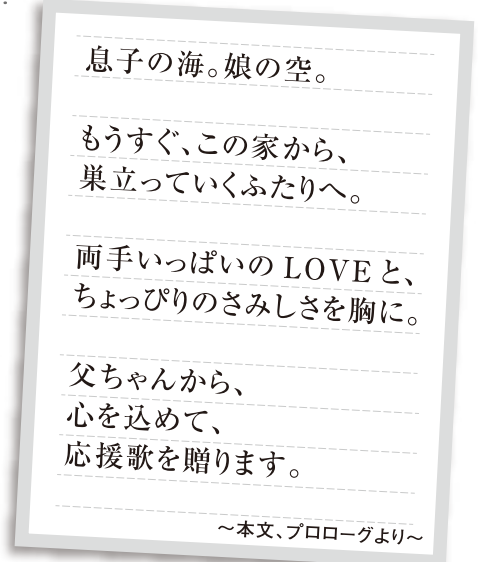 息子の海。娘の空。
もうすぐ、この家から、
巣立っていくふたりへ。
両手いっぱいのLOVEと、
ちょっぴりのさみしさを胸に。
父ちゃんから、
心を込めて、
応援歌を贈ります。
～本文、プロローグより～